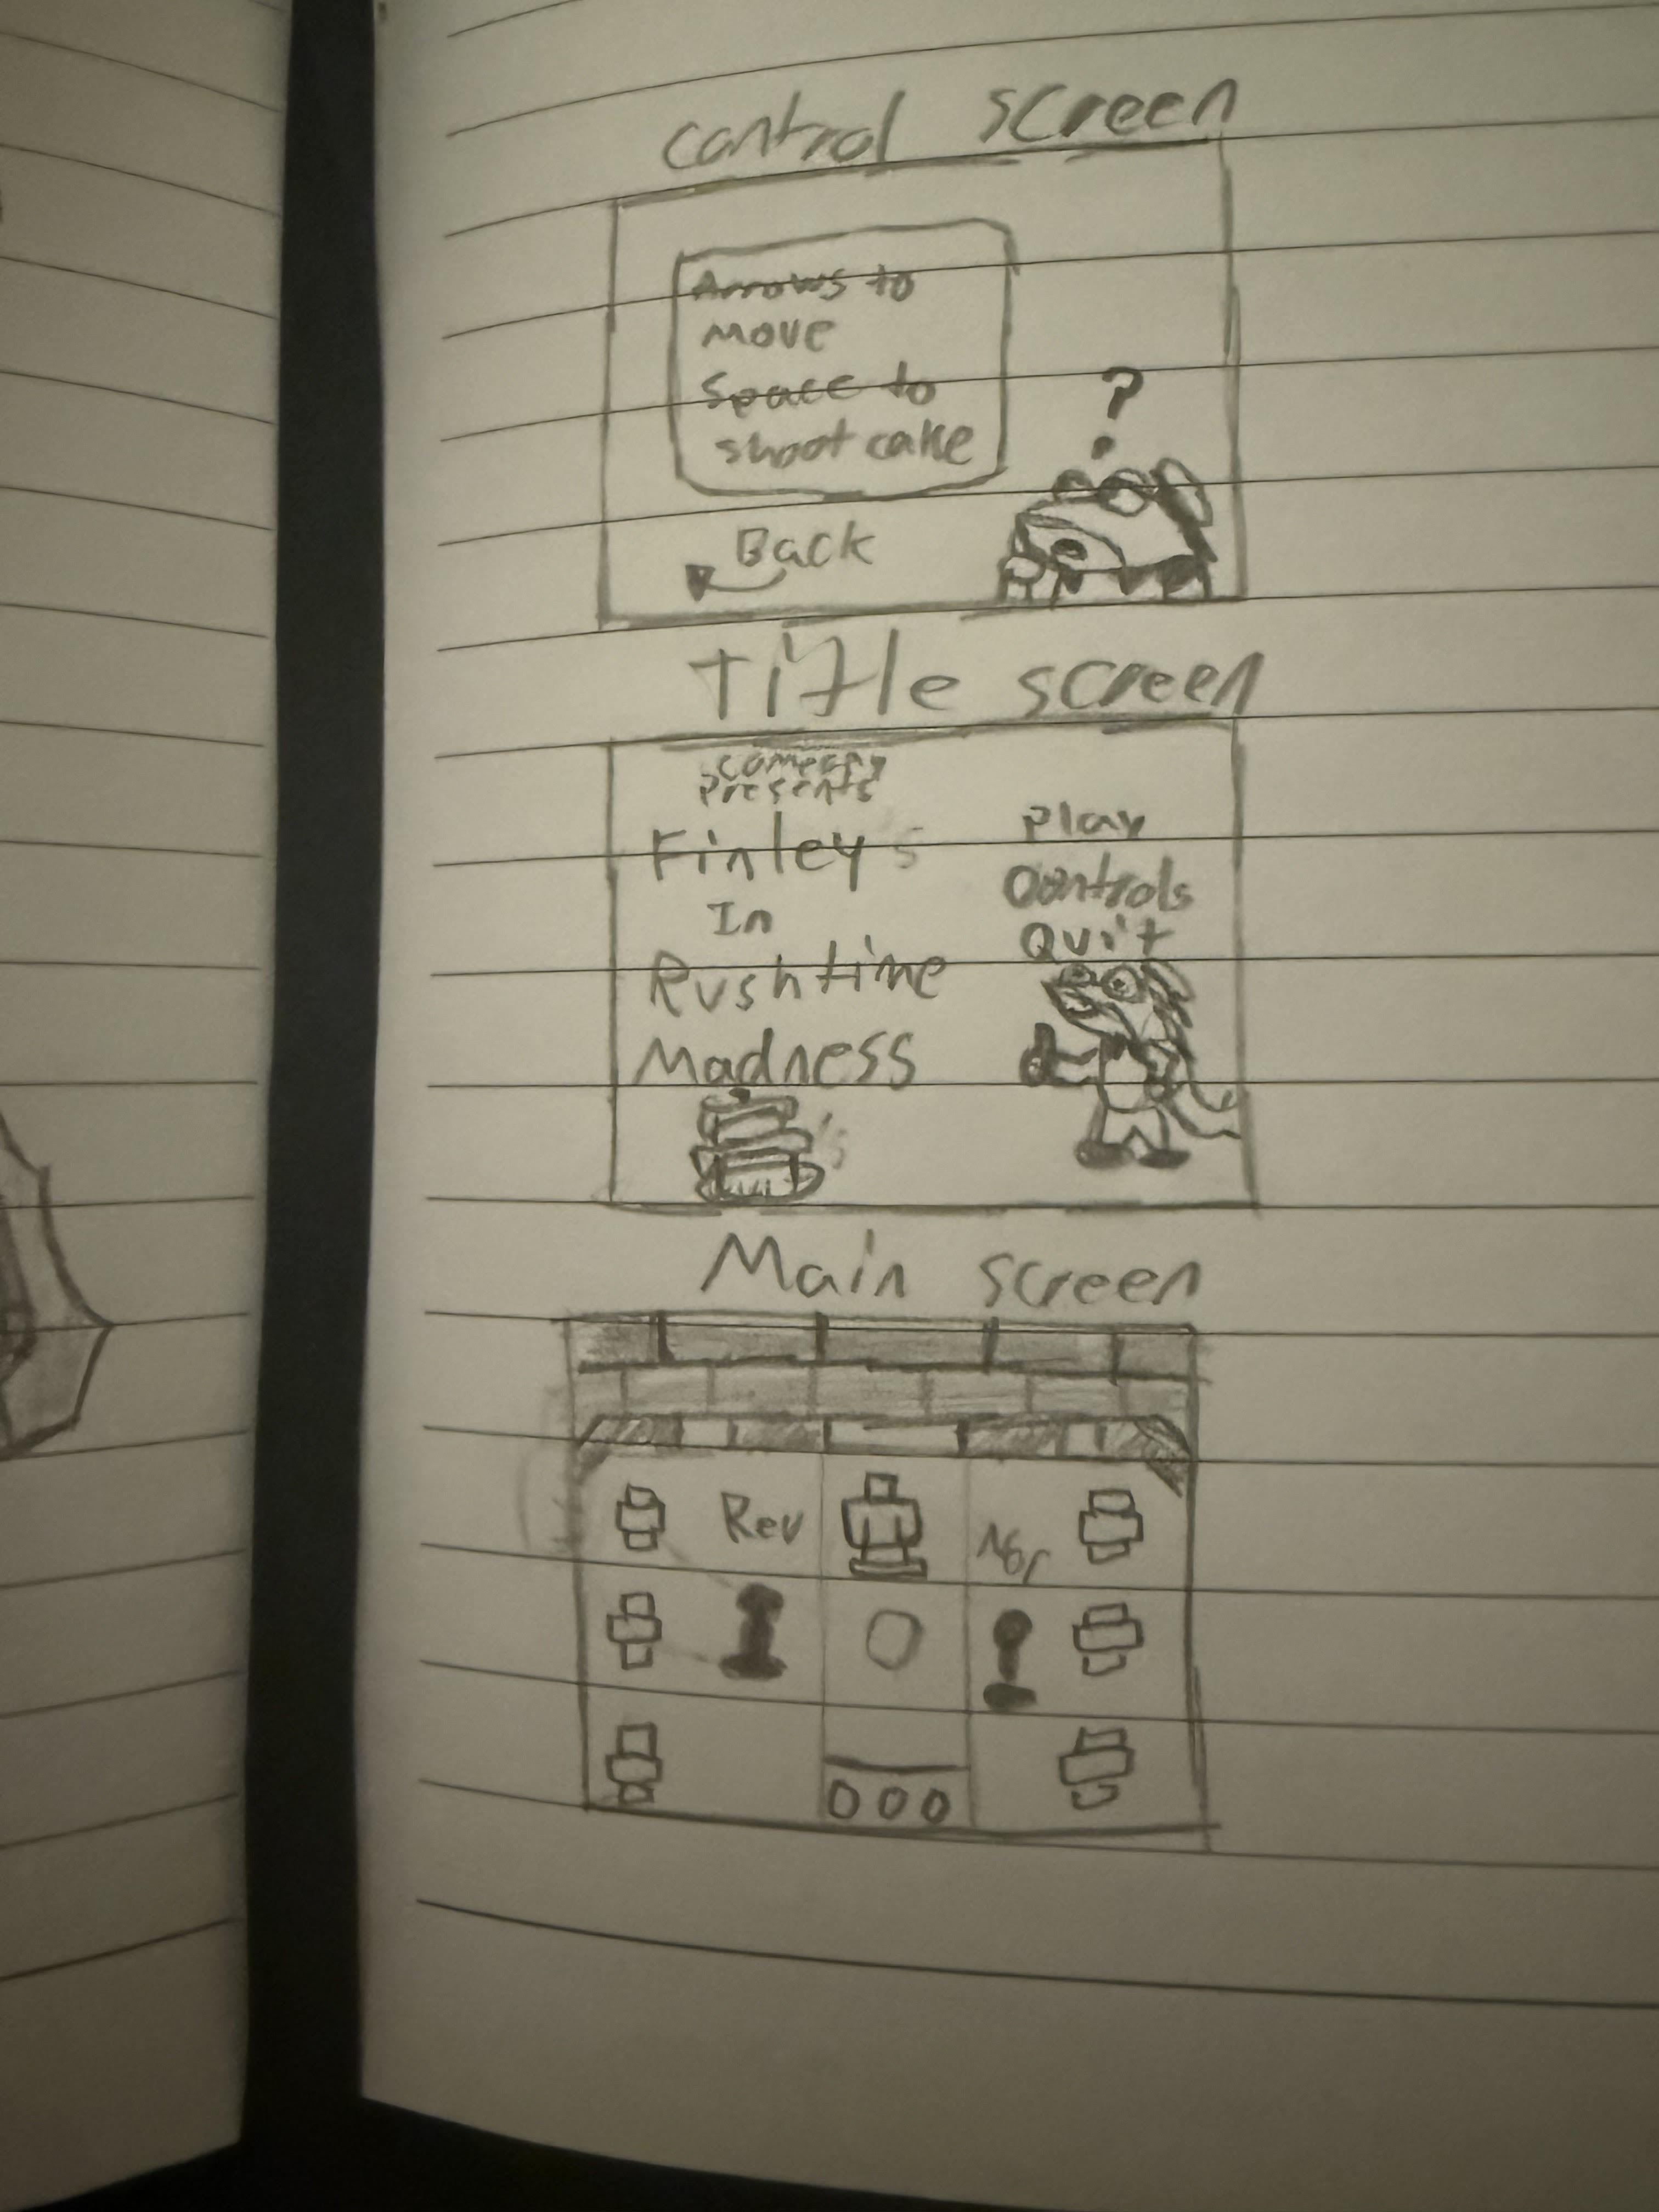 control screen
Arrows to
move
Space to
shoot cake
?
Back
Title screen
presents
Finley's
In
Rushtime
Madness
Play
Controls
Quit
Main screen
Rev
Nor